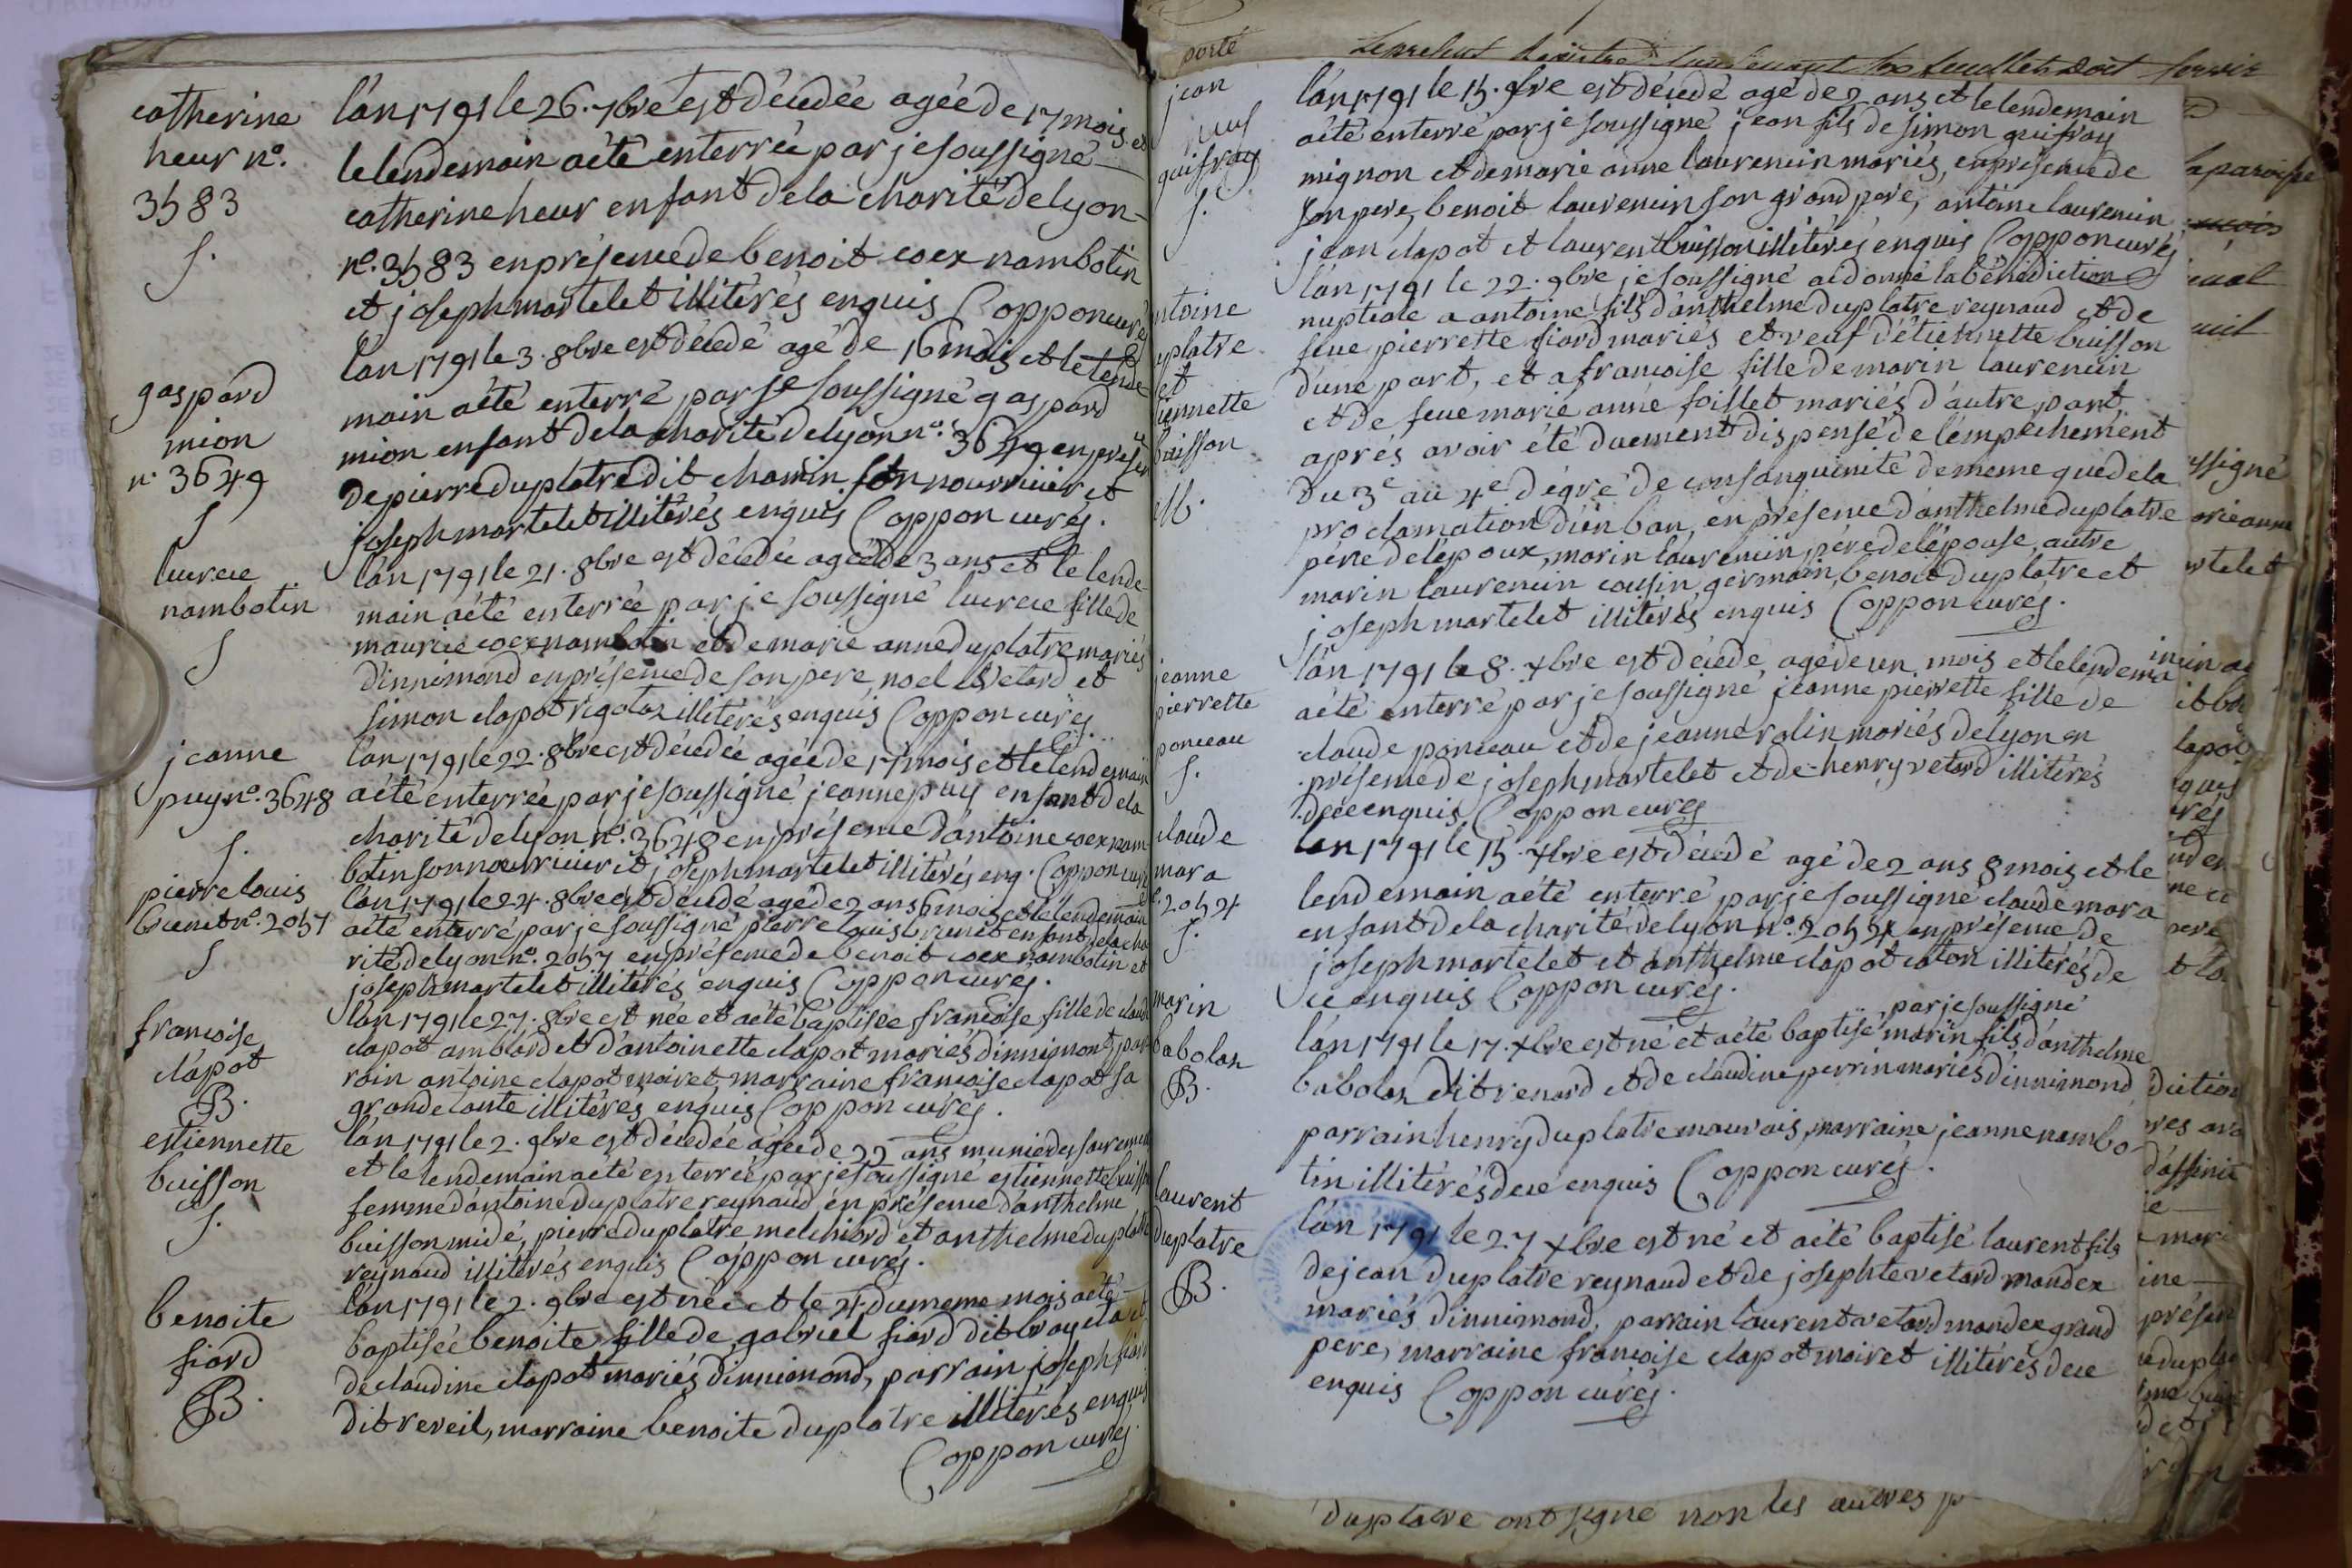 catherine
heur nº.
3583
S.
l'an 1791 le 26. 7bre est décédée agée de 17 mois et
le lendemain a été enterrée par je soussigné
catherine heur enfant de la charité de lyon
nº. 3583 en présence de benoit coex nambotin
et joseph martelet illitérés enquis Coppon curé
gaspard
mion
nº 3649
S
l'an 1791 le 3. 8bre est décédé agé de 16 mois et le lende
main a été enterré par je soussigné gaspard
mion enfant de la charité de lyon nº. 3649 en présen
de pierre duplatre dit chamin son nourricier et
joseph martelet illitérés enquis Coppon curé.
lucrece
nambotin
S
l'an 1791 le 21. 8bre est décédée agée de 3 ans et le lende
main a été enterrée par je soussigné lucrece fille de
maurice coex nambotin et de marie anne duplatre mariés
d'innimond en présence de son pere noel vetard et
simon clapot rigoloz illitérés enquis Coppon curé
jeanne
puy nº. 3648
S.
l'an 1791 le 22. 8bre est décédée agée de 17 mois et le lendemain
a été enterrée par je soussigné jeanne puy enfant de la
charité de lyon nº. 3648 en présence d'antoine coex nam
botin son nourricier et joseph martelet illitérés enq. Coppon curé
pierre louis
brunet nº. 2057
S
l'an 1791 le 24. 8bre est décédé agé de 2 ans 6 mois et le lendemain
a été enterré par je soussigné pierre louis brunet enfant de la cha
rité de lyon nº. 2057 en présence de benoit coex nambotin et
joseph martelet illitérés enquis Coppon curé.
francoise
clapot
B.
l'an 1791 le 27. 8bre est née et a été baptisée francoise fille de claude
clapot amblard et d'antoinette clapot mariés d'innimont, par
rain antoine clapot moiret, marraine francoise clapot sa
grande tante illitérés enquis Coppon curé.
estiennette
buisson
S.
l'an 1791 le 2. 9bre est décédée agée de 22 ans munie des sacremens
et le lendemain a été enterrée par je soussigné estiennette buisson
femme d'antoine duplatre reynaud, en présence d'anthelme
buisson midé, pierre duplatre melchiord et anthelme duplatre
reynaud illitérés enquis Coppon curé.
benoite
fiord
B.
l'an 1791 le 2. 9bre est née et le 4. du meme mois a été
baptisée benoite fille de gabriel fiord dit et
de claudine clapot mariés d'innimond, parrain joseph fiord
dit reveil, marraine benoite duplatre illitérés enquis
Coppon curé.
porté
jean
guifray
S.
l'an 1791 le 15. 9bre est décédé agé de 2 ans et le lendemain
a été enterré par je soussigné jean fils de simon guifray
mignon et de marie anne laurencin mariés, en présence de
son pere, benoit laurencin son grand pere, antoine laurencin
jean clapot et laurent buisson illitérés enquis Coppon curé
ntoine
uplatre
et
tiennette
buisson
M.
l'an 1791 le 22. 9bre je soussigné ai donné la bénédiction
nuptiale a antoine fils d'anthelme duplatre reynaud et de
feue pierrette fiord mariés et veuf d'étiennette buisson
d'une part, et a francoise fille de marin laurencin
et de feue marie anne foillet mariés d'autre part,
aprés avoir été duement dispensé de l'empechement
du 3e au 4e dégré de consanguinité de meme que de la
proclamation d'un ban, en présence d'anthelme duplatre
pere de l'époux, marin laurencin pere de l'épouse, autre
marin laurencin cousin germain, benoit duplatre et
joseph martelet illitérés enquis Coppon curé.
jeanne
pierrette
ponceau
S.
l'an 1791 le 8. xbre est décédé agé de un mois et le lendemain
a été enterré par je soussigné jeanne pierrette fille de
claude ponceau et de jeanne rolin mariés de lyon en
présence de joseph martelet et de henry vetard illitérés
de ce enquis Coppon curé
claude
mara
nº. 2054
S.
l'an 1791 le 15. xbre est décédé agé de 2 ans 8 mois et le
lendemain a été enterré par je soussigné claude mara
enfant de la charité de lyon nº. 2054 en présence de
joseph martelet et anthelme clapot coton illitérés de
ce enquis Coppon curé.
marin
babolaz
B.
par je soussigné
l'an 1791 le 17. xbre est né et a été baptisé marin fils d'anthelme
babolaz dit renard et de claudine perrin mariés d'innimond
parrain henry duplatre mauvais, marraine jeanne nambo
tin illitérés de ce enquis Coppon curé.
laurent
duplatre
B.
l'an 1791 le 27 xbre est né et a été baptisé laurent fils
de jean duplatre reynaud et de josephte vetard mandex
mariés d'innimond, parrain laurent vetard mandex grand
pere, marraine francoise clapot moiret illitérés de ce
enquis Coppon curé.
duplatre ont signé non les autres p